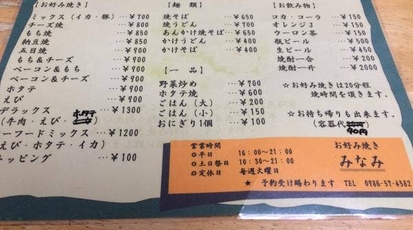 【お好み焼き】
ミックス（イカ・豚） …￥700
チーズ焼 …￥800
もち焼 …￥850
納豆焼 …￥850
五目焼 …￥900
もち＆チーズ
ベーコン＆もち
ベーコン＆チーズ
ホタテ
えび
デラックス …￥1300
ホタテ
（牛肉・えび・
ーフードミックス …￥1300
えび・ホタテ・イカ）
ッピング …￥100
【麺類】
焼そば …￥650
焼うどん …￥700
あんかけ焼そば …￥650
かけうどん …￥400
かけそば …￥400
【一品】
野菜炒め …￥700
ホタテ焼 …￥600
ごはん（大） …￥200
ごはん（小） …￥150
おにぎり1個 …￥100
【お飲み物】
コカ・コーラ …￥150
オレンジ …￥150
ウーロン茶 …￥150
瓶ビール …￥600
生ビール …￥450
焼酎一合 …￥200
焼酎一升 …￥2000
☆お好み焼きは20分程
焼時間を頂きます。
☆お持ち帰りも出来ます。
（容器代
90円
営業時間
◎平日 16:00～21:00
◎土日祭日 10:30～21:00
◎定休日 毎週火曜日
お好み焼き
みなみ
★予約受け賜わります TEL 0986-57-4582